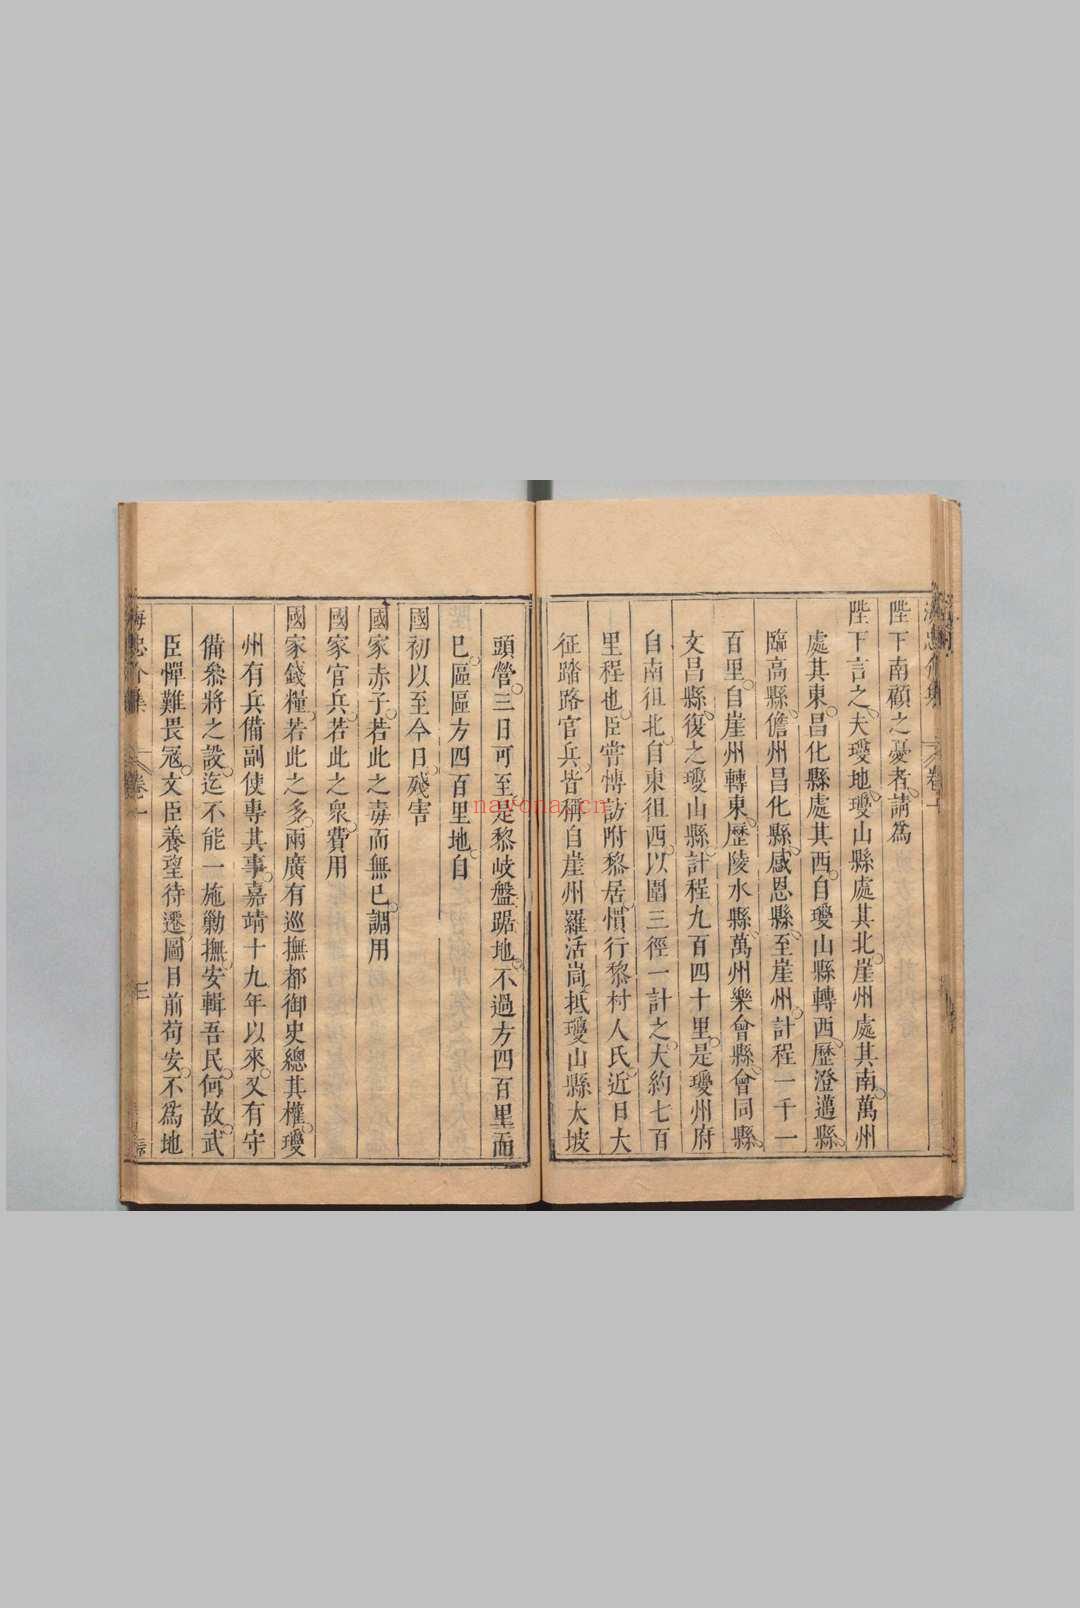 陛下南顧之憂者請爲
陛下言之夫瓊地瓊山縣處其北崖州處其南萬州
處其東昌化縣處其西自瓊山縣轉西歷澄邁縣
臨高縣儋州昌化縣感恩縣至崖州計程一千一
百里自崖州轉東歷陵水縣萬州樂會縣會同縣
文昌縣復之瓊山縣計程九百四十里是瓊州府
自南徂北自東徂西以圍三徑一計之大約七百
里程也臣嘗博訪附黎居慣行黎村人氏近日大
征踏路官兵皆稱自崖州羅活峝抵瓊山縣太坡
頭營三日可至是黎岐盤踞地不過方四百里而
巳區區方四百里地自
國初以至今日殘害
國家赤子若此之毒而無巳調用
國家官兵若此之衆費用
國家錢糧若此之多兩廣有巡撫都御史總其權瓊
州有兵備副使專其事嘉靖十九年以來又有守
備叅將之設迄不能一施勦撫安輯吾民何故武
臣憚難畏寇文臣養望待遷圖目前苟安不爲地
海忠介集 卷一 三
nayona.cn